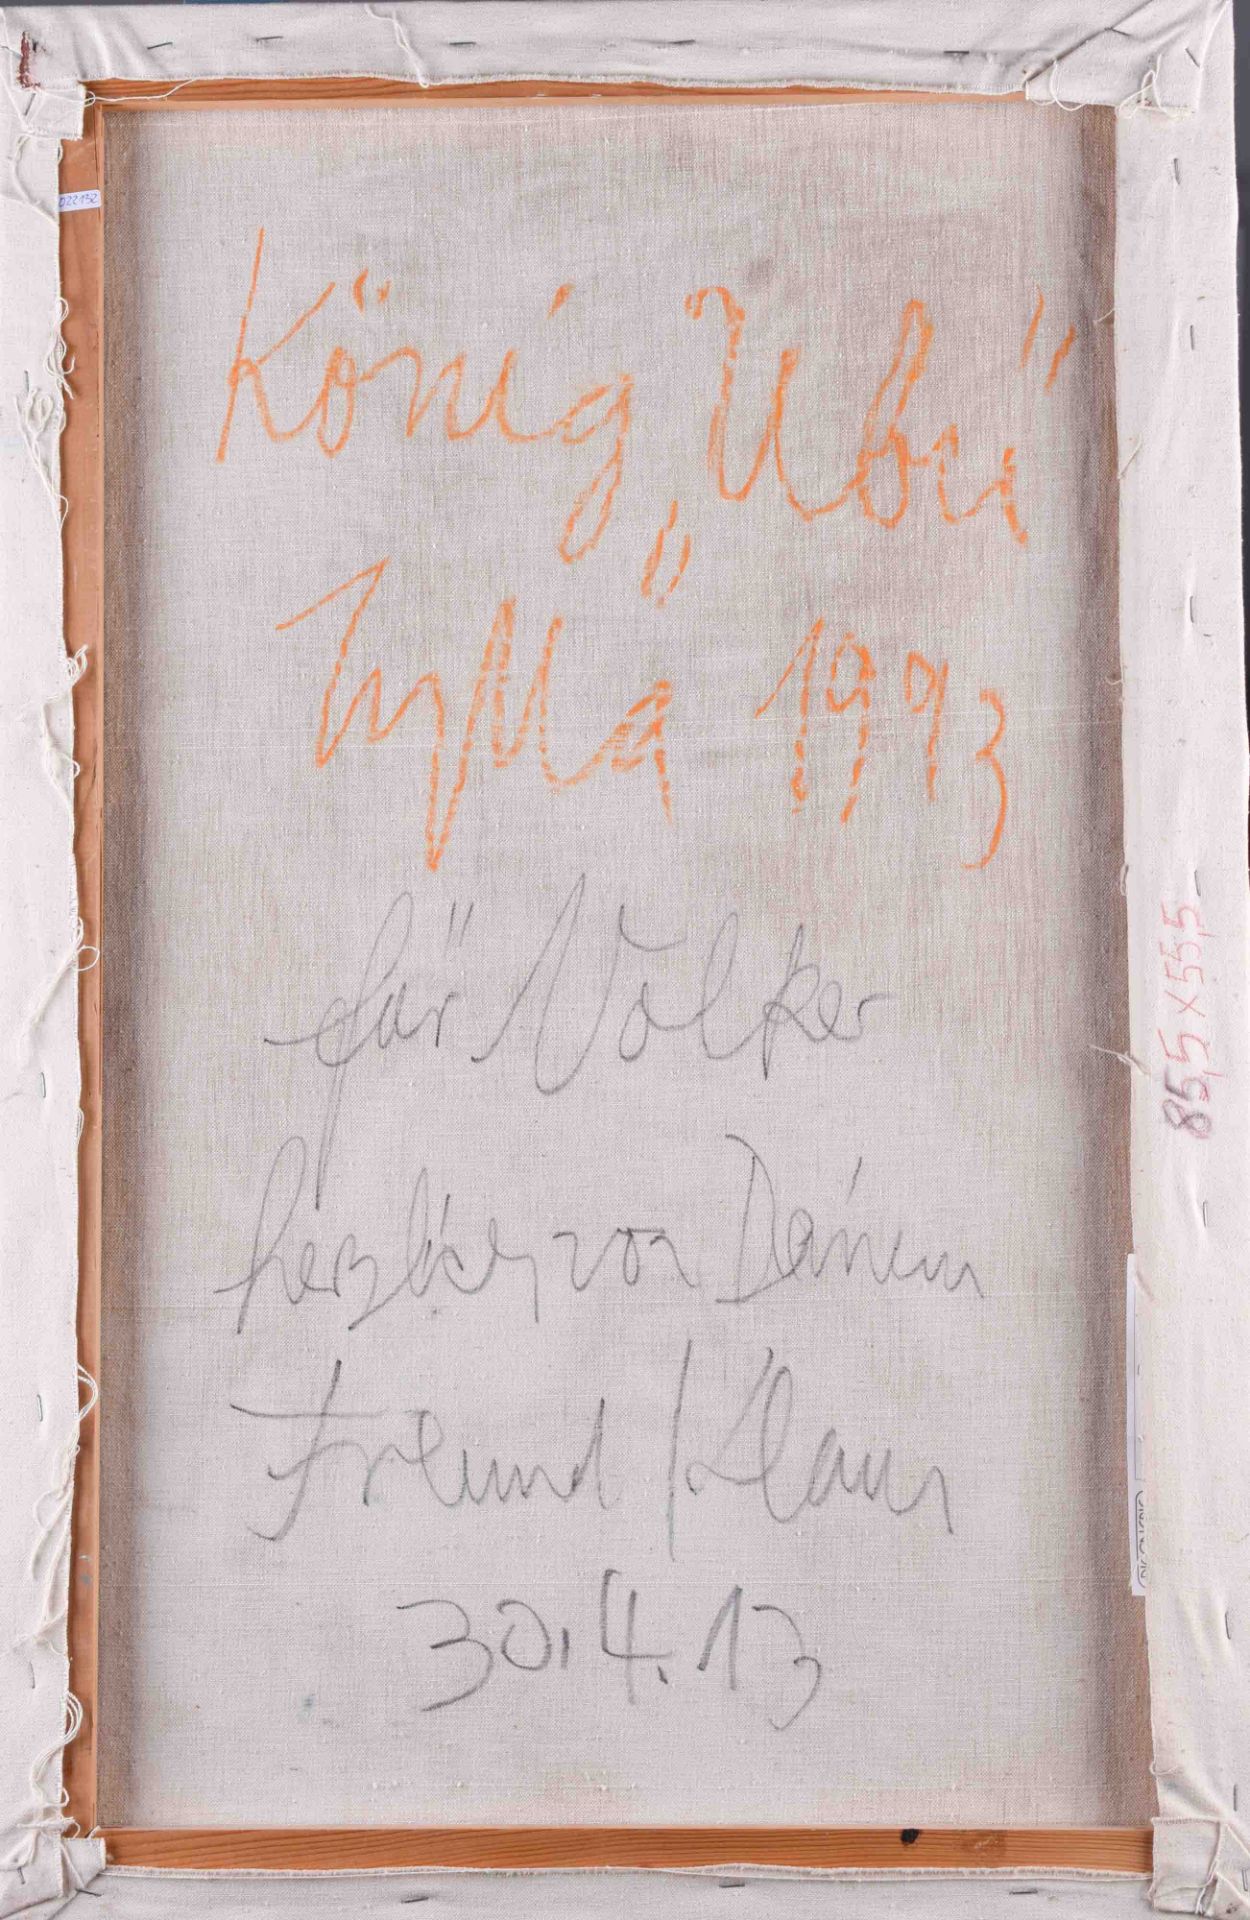 022132
König „Ubu"
Zylla 1993
für Volker
herzlich von Deinem
Freund Klaus
30.4.13
85,5 x 55,5